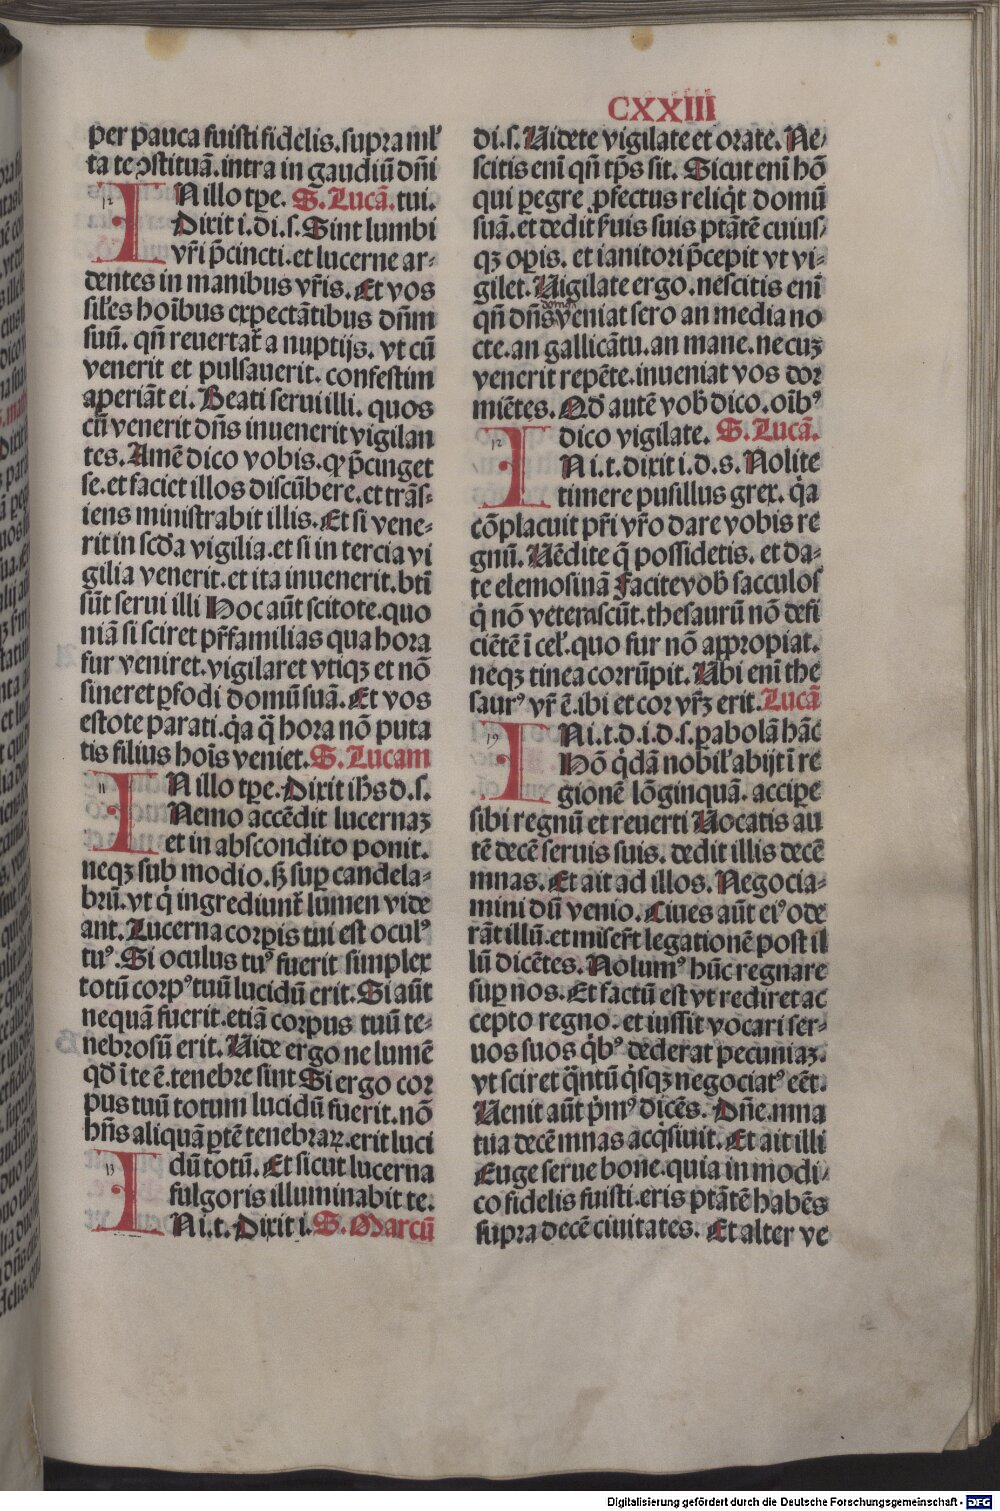 CXXIII
per pauca fuisti fidelis. supra ml'
ta te ↄstituā. intra in gaudiū dn̄i
IN illo tp̄e. S. Lucā. tui.
Dixit i. di. s. Sint lumbi
vr̄i p̄cincti. et lucerne ar-
dentes in manibus vr̄is. Et vos
sil'es hoībus expectātibus dn̄m
suū. qn̄ reuertat̄ a nuptijs. vt cū
venerit et pulsauerit. confestim
aperiāt ei. Beati serui illi. quos
cū venerit dn̄s inuenerit vigilan
tes. Amē dico vobis. ꝙ p̄cinget
se. et faciet illos discūbere. et trās-
iens ministrabit illis. Et si vene-
rit in scd̄a vigilia. et si in tercia vi
gilia venerit. et ita inuenerit. bt̄i
sūt serui illi Hoc aūt scitote. quo
niā si sciret pr̄familias qua hora
fur veniret. vigilaret vtiqꝫ et nō
sineret ꝑfodi domū suā. Et vos
estote parati. q̇a q̄ hora nō puta
tis filius hoīs veniet. S. Lucam
IN illo tp̄e. Dixit ih̄s d. s.
Nemo accēdit lucernaꝫ
et in abscondito ponit.
neqꝫ sub modio. sꝫ suꝑ candela-
brū. vt q̇ ingrediunt̄ lumen vide
ant. Lucerna corꝑis tui est oculꝰ
tuꝰ. Si oculus tuꝰ fuerit simplex
totū corpꝰ tuū lucidū erit. Si aūt
nequā fuerit. etiā corpus tuū te-
nebrosū erit. Vide ergo ne lumē
qd̄ ī te ē. tenebre sint Si ergo cor
pus tuū totum lucidū fuerit. nō
hn̄s aliquā ꝑtē tenebraꝝ. erit luci
dū totū. Et sicut lucerna
fulgoris illuminabit te.
IN i. t. Dixit i. S. Marcū
di. s. Videte vigilate et orate. Ne-
scitis enī qn̄ tp̄s sit. Sicut enī hō
qui ꝑegre ꝓfectus reliq̇t domū
suā. et dedit s̄uis suis ptātē cuius-
qꝫ oꝑis. et ianitori p̄cepit vt vi-
gilet. Vigilate ergo. nescitis enī
qn̄ dn̄s dom⁹ veniat sero an media no
cte. an gallicātu. an mane. ne cuꝫ
venerit repēte. inueniat vos dor
miētes. Qd̄ autē vob̄ dico. oībꝰ
dico vigilate. S. Lucā.
IN i. t. dixit i. d. s. Nolite
timere pusillus grex. q̇a
cōplacuit pr̄i vr̄o dare vobis re
gnū. Vēdite q̄ possidetis. et da-
te elemosinā Facite vob̄ sacculos
q̇ nō veterascūt. thesaurū nō defi
ciētē ī cel'. quo fur nō appropiat.
neqꝫ tinea corrūpit. Vbi enī the
saurꝰ vr̄ ē. ibi et cor vr̄ꝫ erit. Lucā
IN i. t. d. i. d. s. ꝑabolā hāc
Hō q̇dā nobil' abijt ī re
gionē lōginquā. accipe
sibi regnū et reuerti Vocatis au
tē decē seruis suis. dedit illis decē
mnas. Et ait ad illos. Negocia-
mini dū venio. Ciues aūt eiꝰ ode
rāt illū. et miser̄t legationē post il
lū dicētes. Nolumꝰ hūc regnare
suꝑ nos. Et factū est vt rediret ac
cepto regno. et iussit vocari ser-
uos suos q̇bꝰ dederat pecuniaꝫ.
vt sciret q̄ntū q̇sqꝫ negociatꝰ eēt.
Venit aūt ṗmꝰ dicēs. Dn̄e. mna
tua decē mnas acq̇siuit. Et ait illi
Euge serue bone. quia in modi-
co fidelis fuisti. eris ptātē habēs
supra decē ciuitates. Et alter ve
Digitalisierung gefördert durch die Deutsche Forschungsgemeinschaft - DFG